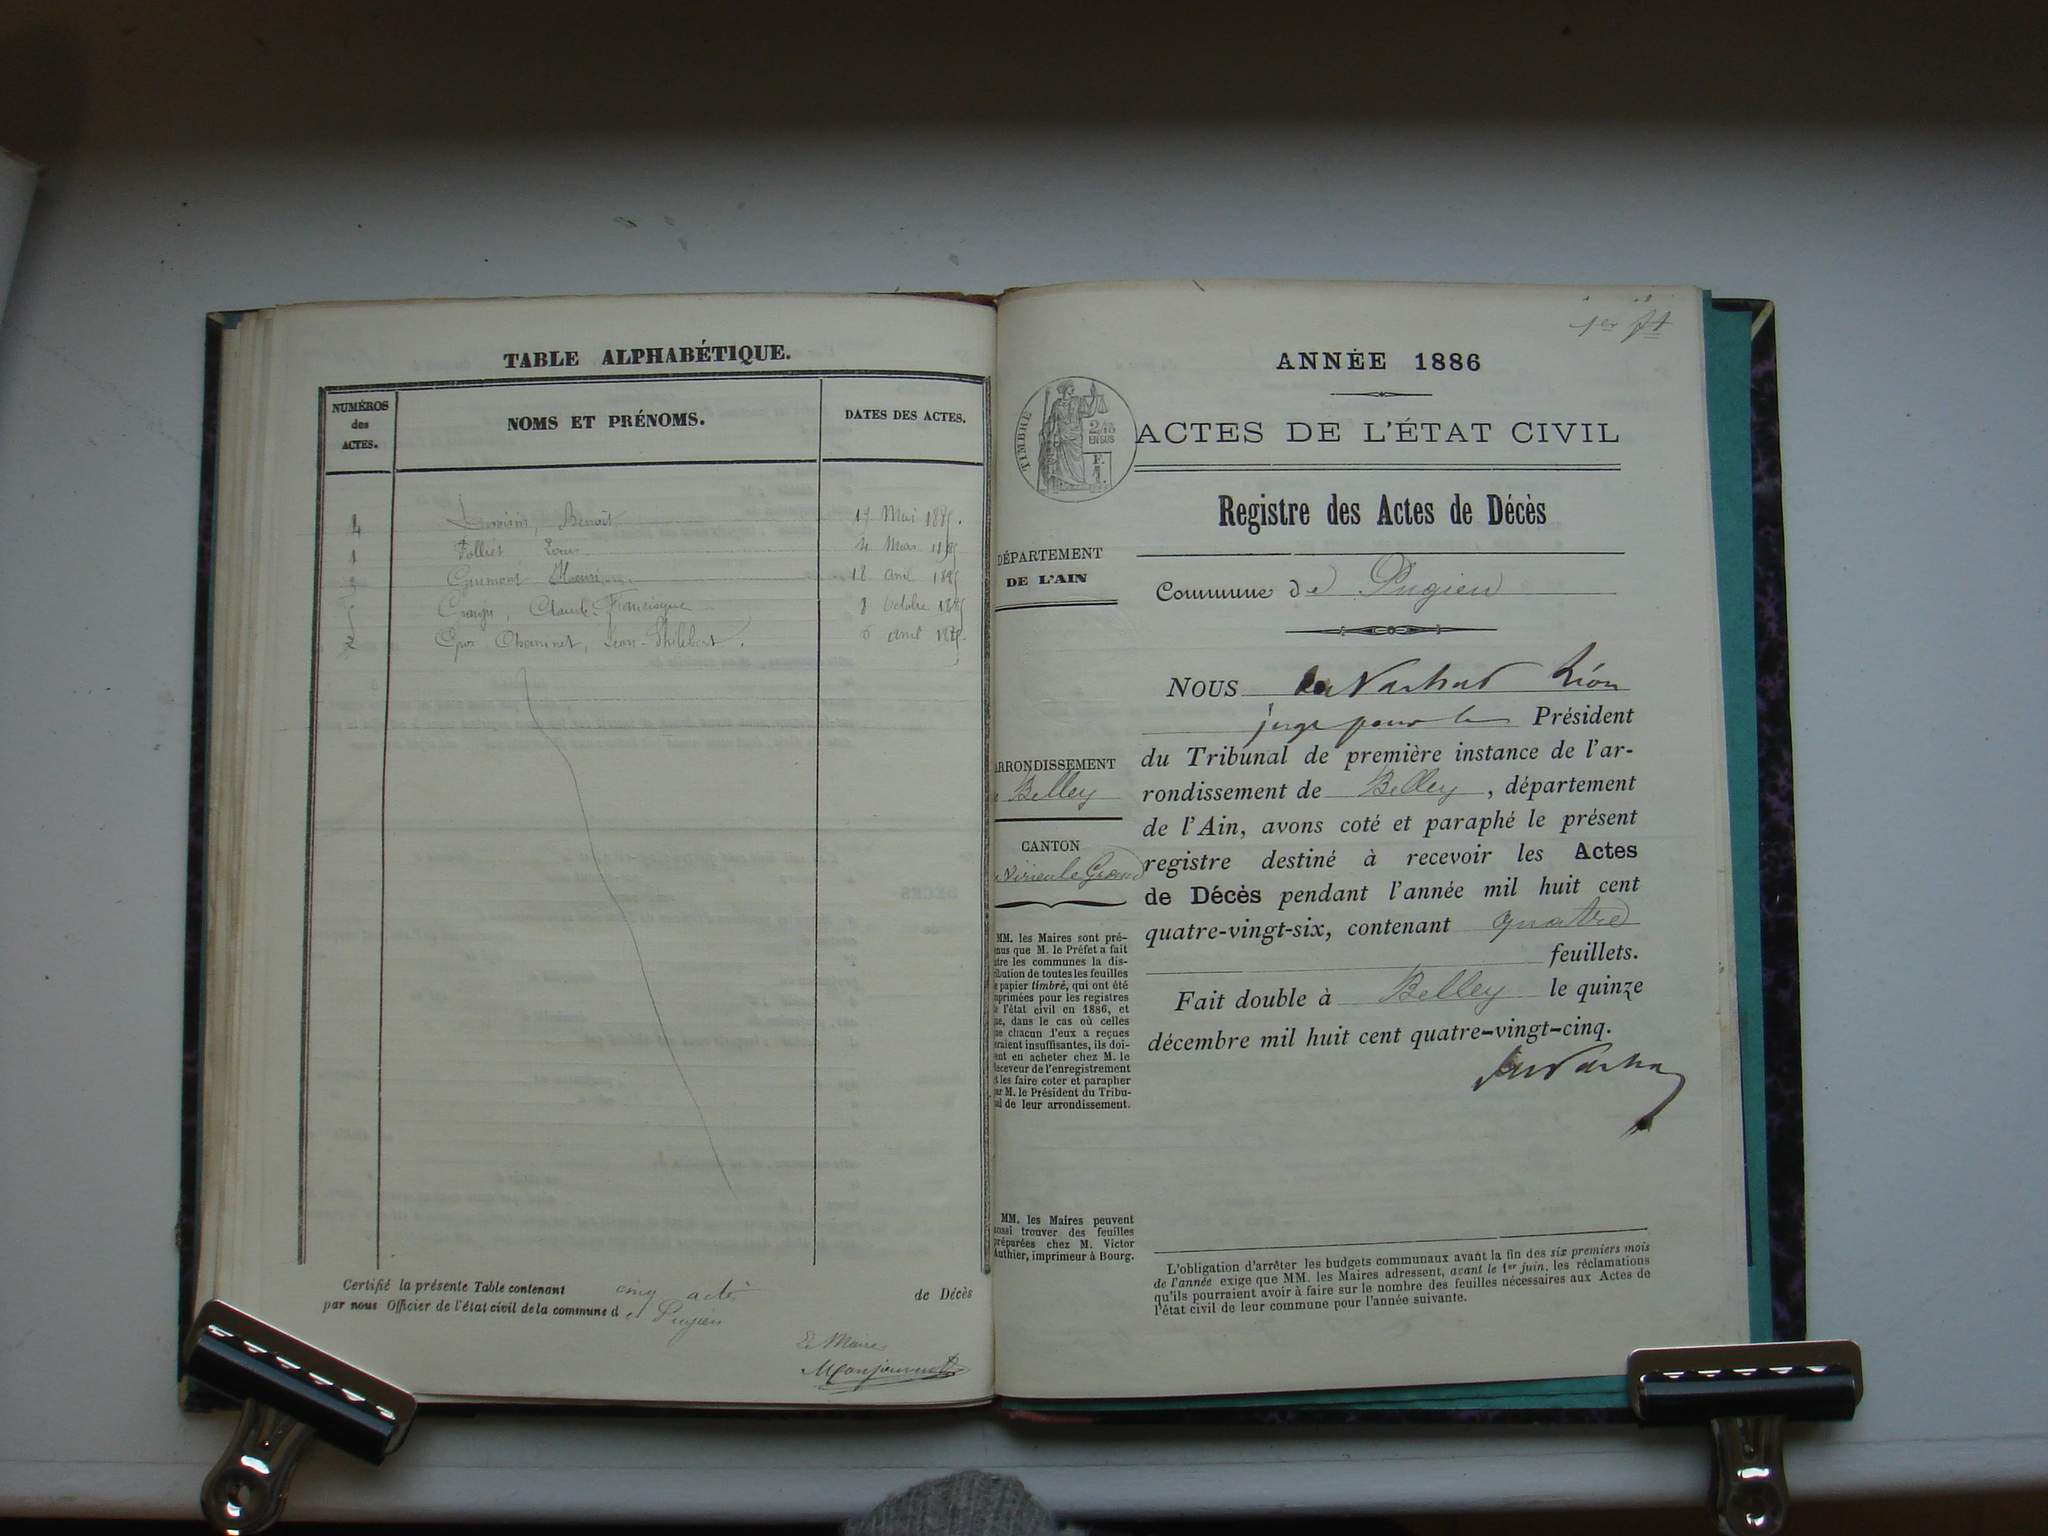 TABLE ALPHABÉTIQUE.
NUMÉROS
des
ACTES.
NOMS ET PRÉNOMS.
DATES DES ACTES.
4 Benoît 17 Mai 1885.
1 Folliet Louis 4 Mars 1885
3 Guimont Henri 18 avril 1885
5 Claude-Francisque 8 Octobre 1885
2 Gros Cheminet, Jean-Philibert. 6 avril 1885.
Certifié la présente Table contenant cinq actes de Décès
par nous Officier de l'état civil de la commune de Pugieu
Le Maire
1er ft
ANNÉE 1886
TIMBRE
2/10
EN SUS
F.
1.
ACTES DE L'ÉTAT CIVIL
Registre des Actes de Décès
DÉPARTEMENT
DE L'AIN
Commune de Pugieu
NOUS Léon
juge pour le Président
du Tribunal de première instance de l'ar-
rondissement de Belley, département
de l'Ain, avons coté et paraphé le présent
registre destiné à recevoir les Actes
de Décès pendant l'année mil huit cent
quatre-vingt-six, contenant quatre
feuillets.
Fait double à Belley le quinze
décembre mil huit cent quatre-vingt-cinq.
ARRONDISSEMENT
Belley
CANTON
Virieu le Grand
MM. les Maires sont pré-
nus que M. le Préfet a fait
tre les communes la dis-
ibution de toutes les feuilles
e papier timbré, qui ont été
mprimées pour les registres
e l'état civil en 1886, et
ue, dans le cas où celles
ue chacun d'eux a reçues
eraient insuffisantes, ils doi-
ent en acheter chez M. le
eceveur de l'enregistrement
t les faire coter et parapher
ar M. le Président du Tribu-
al de leur arrondissement.
MM. les Maires peuvent
aussi trouver des feuilles
préparées chez M. Victor
Authier, imprimeur à Bourg.
L'obligation d'arrêter les budgets communaux avant la fin des six premiers mois
de l'année exige que MM. les Maires adressent, avant le 1er juin, les réclamations
qu'ils pourraient avoir à faire sur le nombre des feuilles nécessaires aux Actes de
l'état civil de leur commune pour l'année suivante.